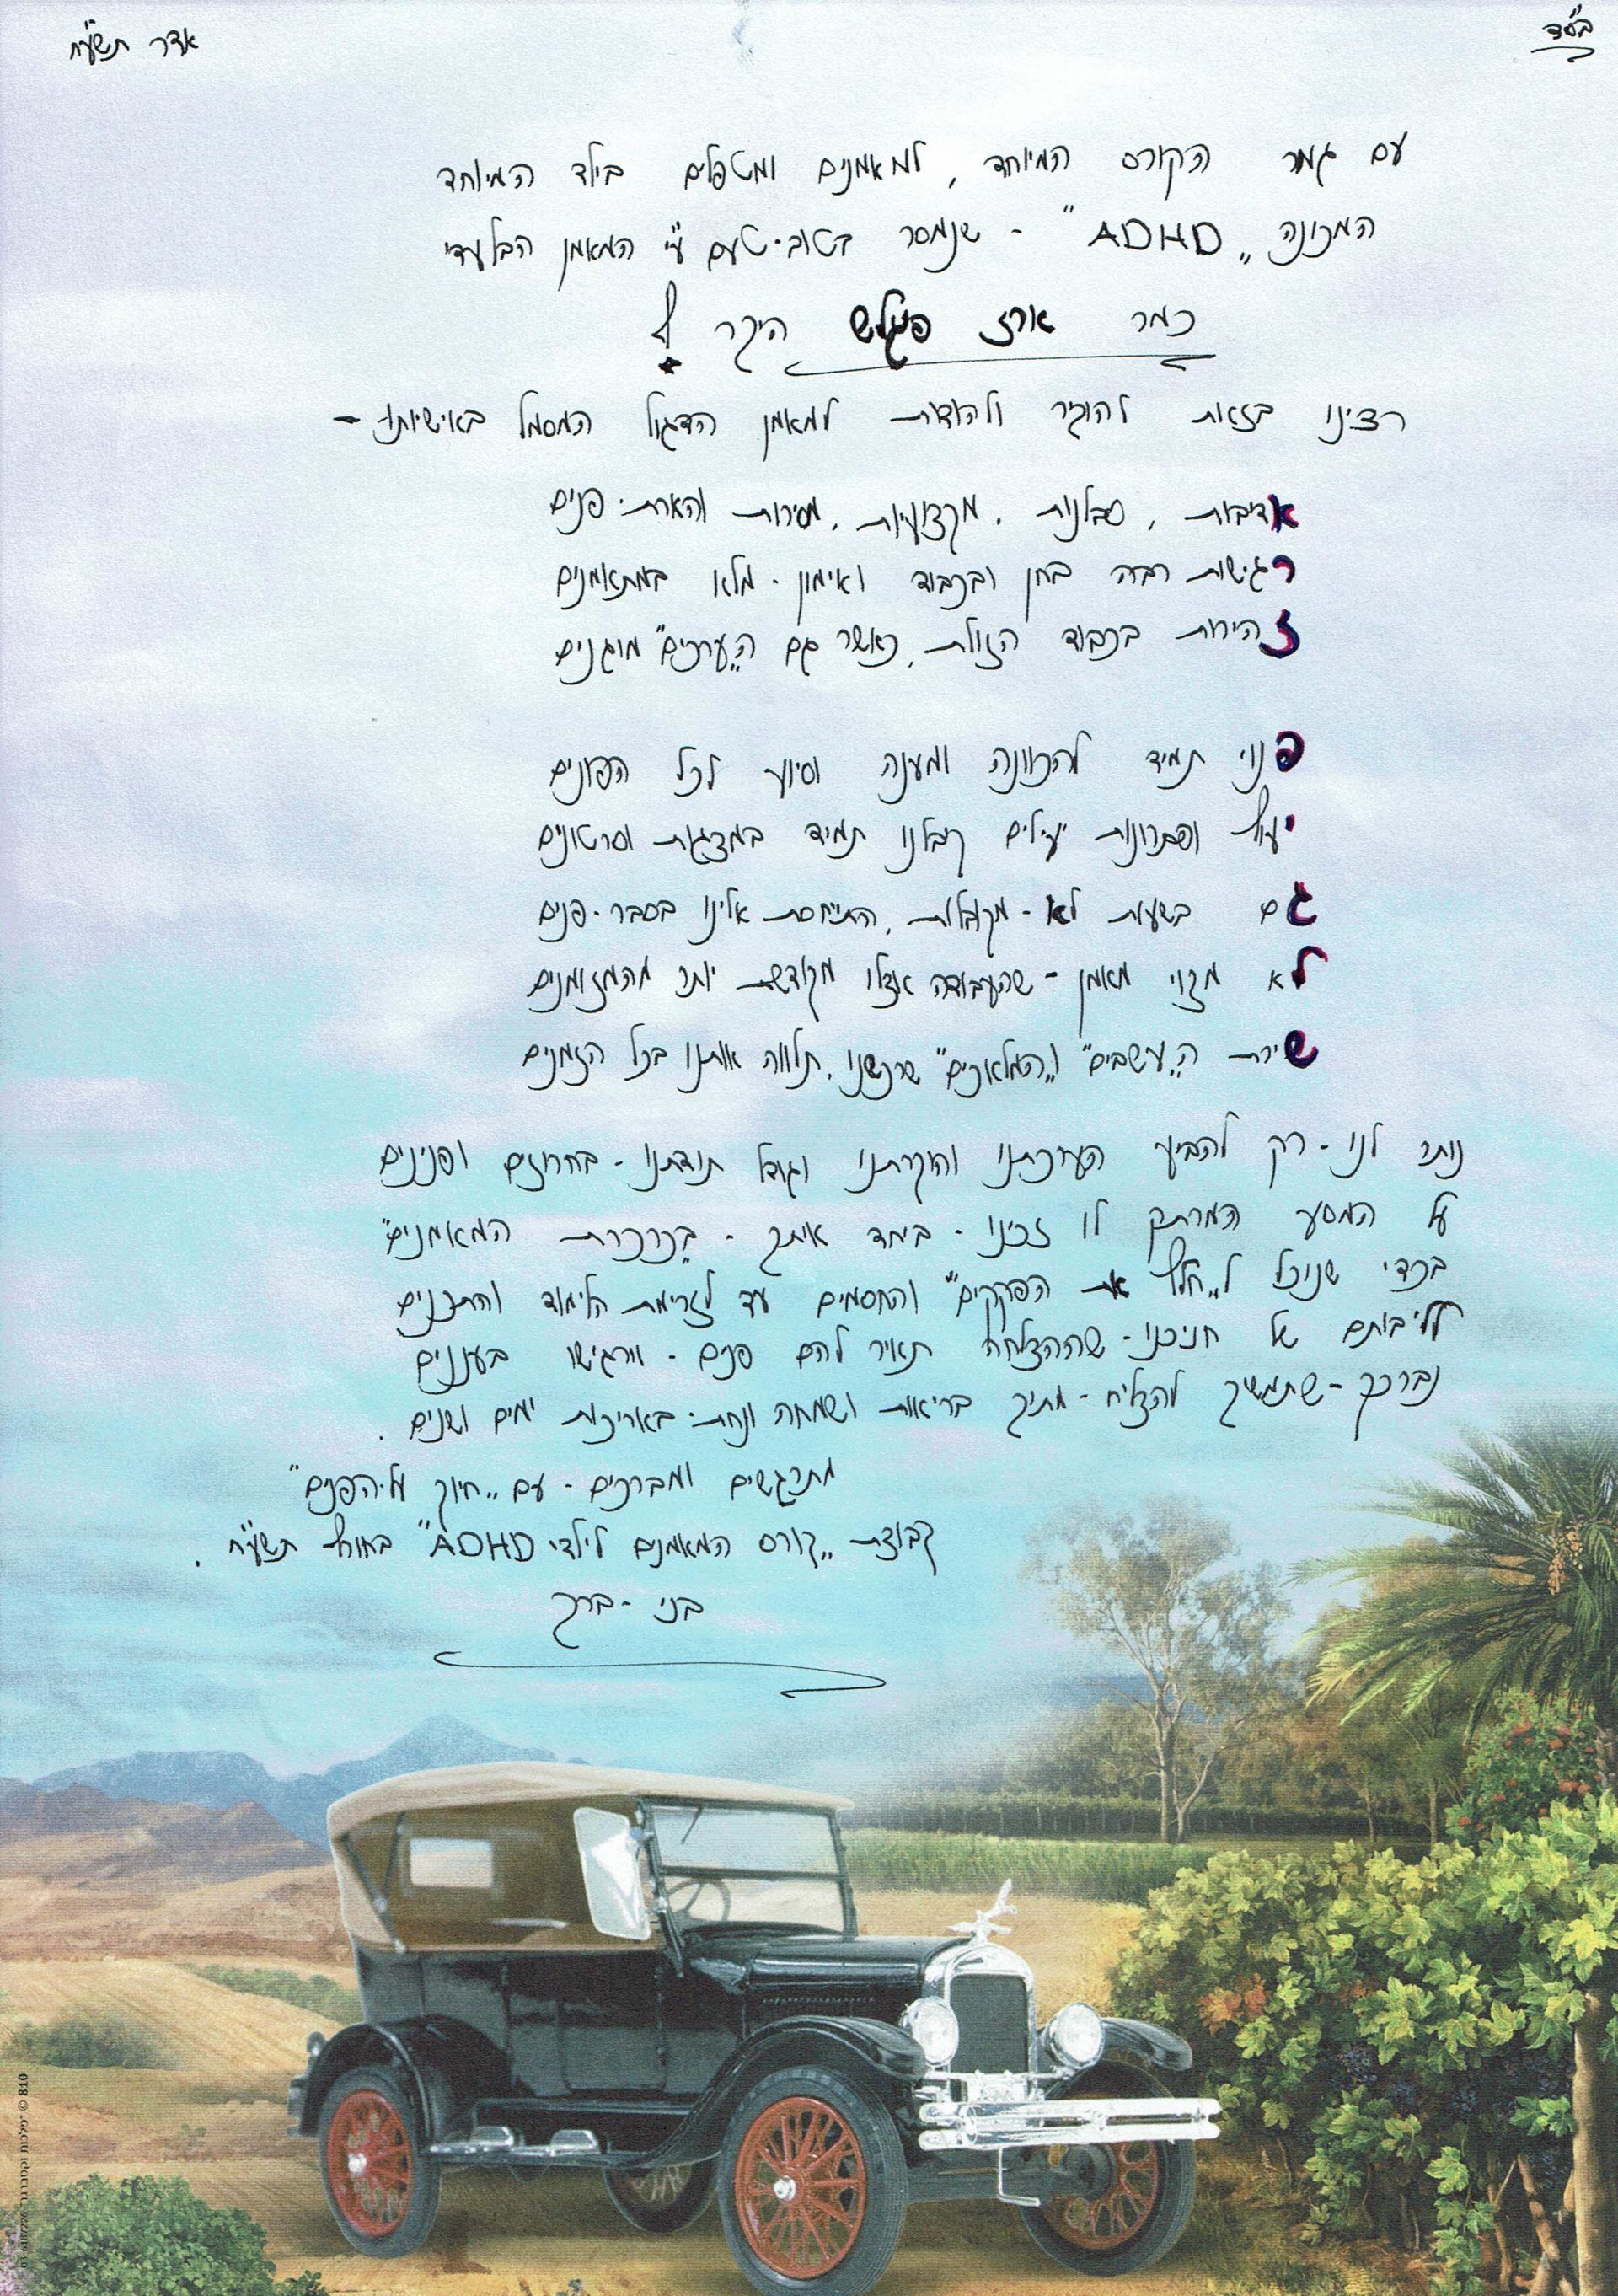 בס"ד
אדר תשע"ח
עם גמר הקורס המיוחד, למאמנים ומטפלים בילד המיוחד
המכונה "ADHD" - שנמסר בטוב-טעם ע"י המאמן הבלעדי
כמר ארז פיגלש היקר
רצינו בזאת להוקיר ולהודות למאמן הדגול המסמל באישיותו -
אדיבות, סבלנות, מקצועיות, מסירות והארת-פנים
רגישות רבה בחן ובכבוד ואימון - מלא במתאמנים
זהירות בכבוד הזולת, כאשר גם ה"ערכים" מוגנים
פנוי תמיד להכוונה ומענה וסיוע לכל הפונים
יעוץ ופתרונות יעילים קיבלנו תמיד במצגות וסרטונים
גם בשעות לא - מקובלות, התייחסת אלינו בסבר-פנים
לא מצוי מאמן - שהעבודה אצלו מקודשת יותר מהמזומנים
שירת ה"עשבים" ו"המלאכים" שרכשנו, תלווה אותנו בכל הזמנים
נותר לנו - רק להביע הערכתנו והוקרתנו וגודל תודתנו - בחרוזים ופנינים
על המסע המרתק לו זכינו - ביחד איתך - ב"כרכרת המאמנים"
בכדי שנוכל ל"חלץ את הפקקים" והחסמים עד לזרימת הלימוד והתכנים
לליבותם של חניכנו - שההצלחה תאיר להם פנים - וירגישו בעננים
נברכך - שתמשיך להצליח - מתוך בריאות ושמחה ונחת - באריכות ימים ושנים.
מתרגשים ומברכים - עם "חיוך על-הפנים"
קבוצת "קורס המאמנים לילדי ADHD" בחורף תשע"ח.
בני - ברק
810 ©
03-6187226